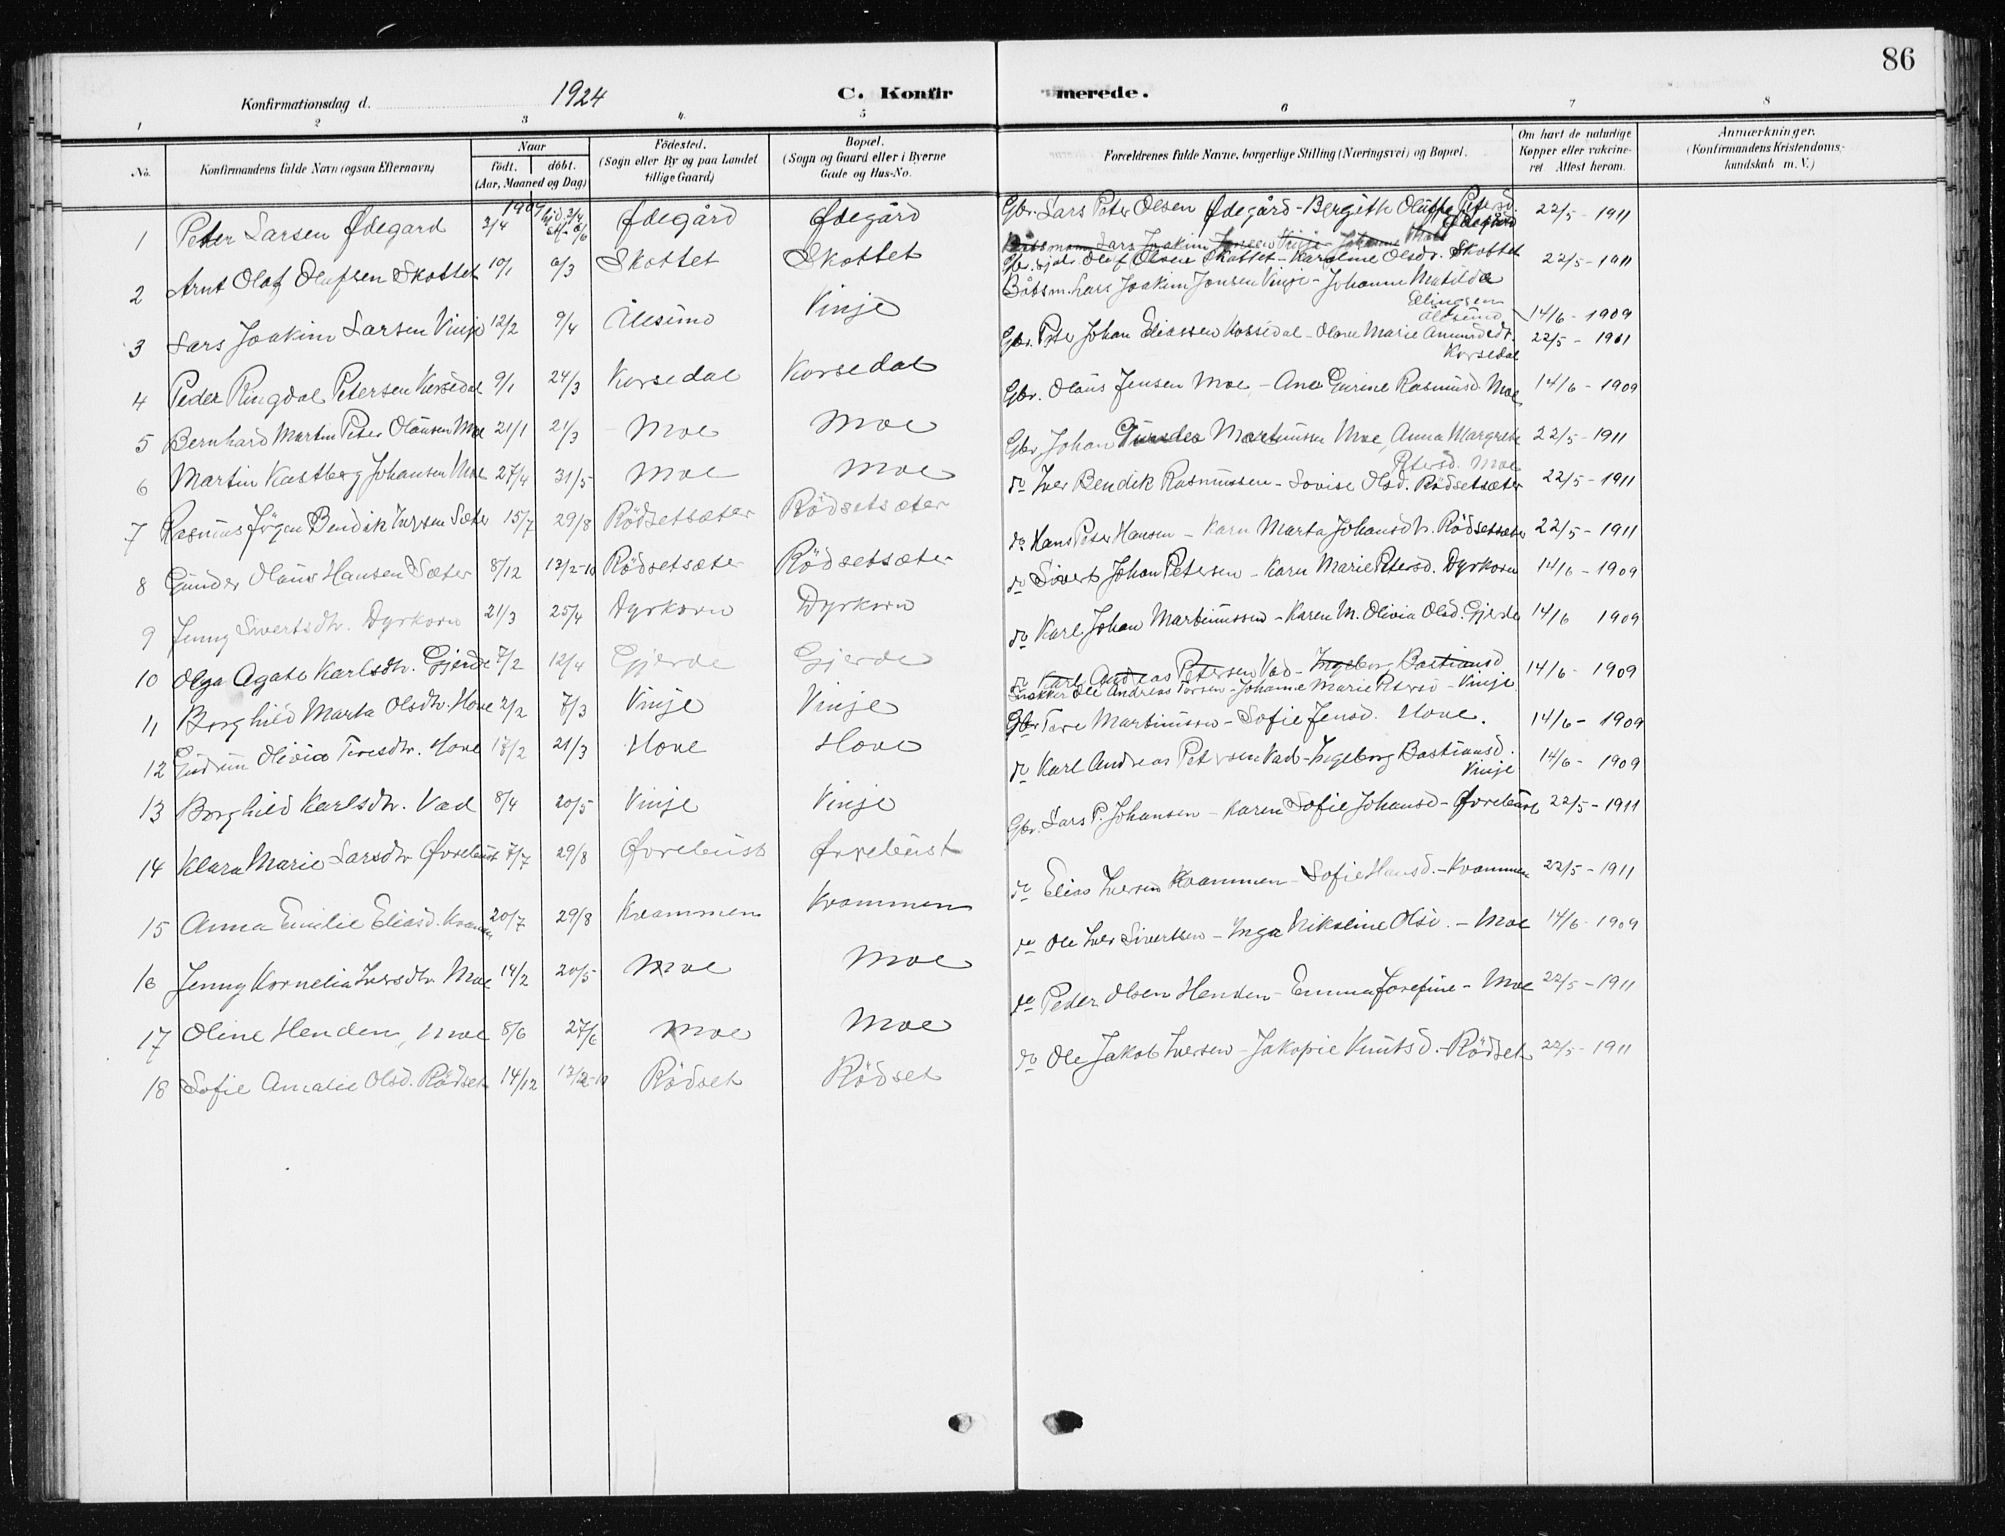 86
Konfirmationsdag d. 1924 C. Konfirmerede.
1 2 3 4 5 6 7 8
No. Konfirmandens fulde Navn (ogsaa Efternavn) Naar født. døbt. (Aar, Maaned og Dag) Fødested. (Sogn eller By og paa Landet tillige Gaard) Bopæl. (Sogn og Gaard eller i Byerne Gade og Hus-No. Forældrenes fulde Navne, borgerlige Stilling (Næringsvei) og Bopæl. Om havt de naturlige Kopper eller vaccineret Attest herom. Anmærkninger. (Konfirmandens Kristendomskundskab m. V.)
1909
1 Peter Larsen Ødegard 3/4 Ødegård Ødegård Gbr. Lars Peter Olsen Ødegård - Bergitte Petersd. Ødegård 22/5 - 1911
2 Arnt Olaf Olafsen Skottet 10/1 6/3 Skottet Skottet Olaf Olsen Skottet - Karoline Olsdr. Skottet 22/5 - 1911
3 Lars Joakim Larsen Vinje 12/2 9/4 Ålesund Vinje Båtsm. Lars Joakim Jonsen Vinje - Johanne Matilde Elingsen Ålesund 14/6 - 1909
4 Peder Ringdal Petersen Korsedal 9/1 24/3 Korsedal Korsedal Gbr. Peter Johan Eliassen Korsedal - Oline Marie Amundsdr. Korsedal 22/5 - 1911
5 Bernhard Martin Peter Olausen Moe 21/1 21/3 Moe Moe Gbr. Olaus Jensen Moe - Ane Gurine Rasmusd. Moe 14/6 - 1909
6 Martin Kastberg Johansen Moe 27/4 31/5 Moe Moe Gbr. Johan Martinusen Moe, Anna Margrete Petersd. Moe 22/5 - 1911
7 Rasmus Jørgen Bendik Iversen Sæter 15/7 29/8 Rödsetsæter Rödsetsæter do Iver Bendik Rasmussen - Lovise Olsd. Rödsetsæter 22/5 - 1911
8 Gunder Olaus Hansen Sæter 8/12 13/2-10 Rödsetsæter Rödsetsæter do Hans Peter Hansen - Karn Marta Johansdtr. Rödsetsæter 22/5 - 1911
9 Jenny Sivertsdtr. Dyrkorn 21/3 25/4 Dyrkorn Dyrkorn do Sivert Johan Petersen - Karn Marie Petersd. Dyrkorn 14/6 - 1909
10 Olga Agate Karlsdtr. Gjerde 7/2 12/4 Gjerde Gjerde do Karl Johan Martinussen - Karen M. Olivia Olsd. Gjerde 14/6 1909
do Karl Andreas Petersen Vad - Ingeborg Bastiansd
11 Borghild Marta Olsdtr. Hove 2/2 7/3 Vinje Vinje Snekker Ole Andreas Toresen - Johanne Marie Petersd - Vinje 14/6 - 1909
12 Gudrun Olivia Toresdtr. Hove 17/2 21/3 Hove Hove Gbr Tore Martinussen - Sofie Jensd. Hove. 14/6 - 1909
13 Borghild Karlsdtr. Vad 8/4 20/5 Vinje Vinje do Karl Andreas Petersen Vad - Ingeborg Bastiansd. Vinje 14/6 - 1909
14 Klara Marie Larsdtr Øvrebust 7/7 29/8 Øvrebust Øvrebust Gbr. Lars P. Johansen - Karen Sofie Johansd - Øvrebust 22/5 - 1911
15 Anna Emilie Eliasd. Kvammen 20/7 29/8 Kvammen Kvammen do Elias Iversen Kvammen - Sofie Hansd. - Kvammen 22/5 - 1911
16 Jenny Kornelia Iversdtr. Moe 14/2 20/5 Moe Moe do Ole Iver Sivertsen - Inga Nikoline Olsd. - Moe 14/6 - 1909
17 Oline Henden, Moe 8/6 27/6 Moe Moe do Peder Olsen Henden - Emma Josefine - Moe 22/5 - 1911
18 Sofie Amalie Olsd. Rödset 14/12 13/2-10 Rödset Rödset do Ole Jakob Iversen - Jakopie Knutsd. - Rödset 22/5 - 1911